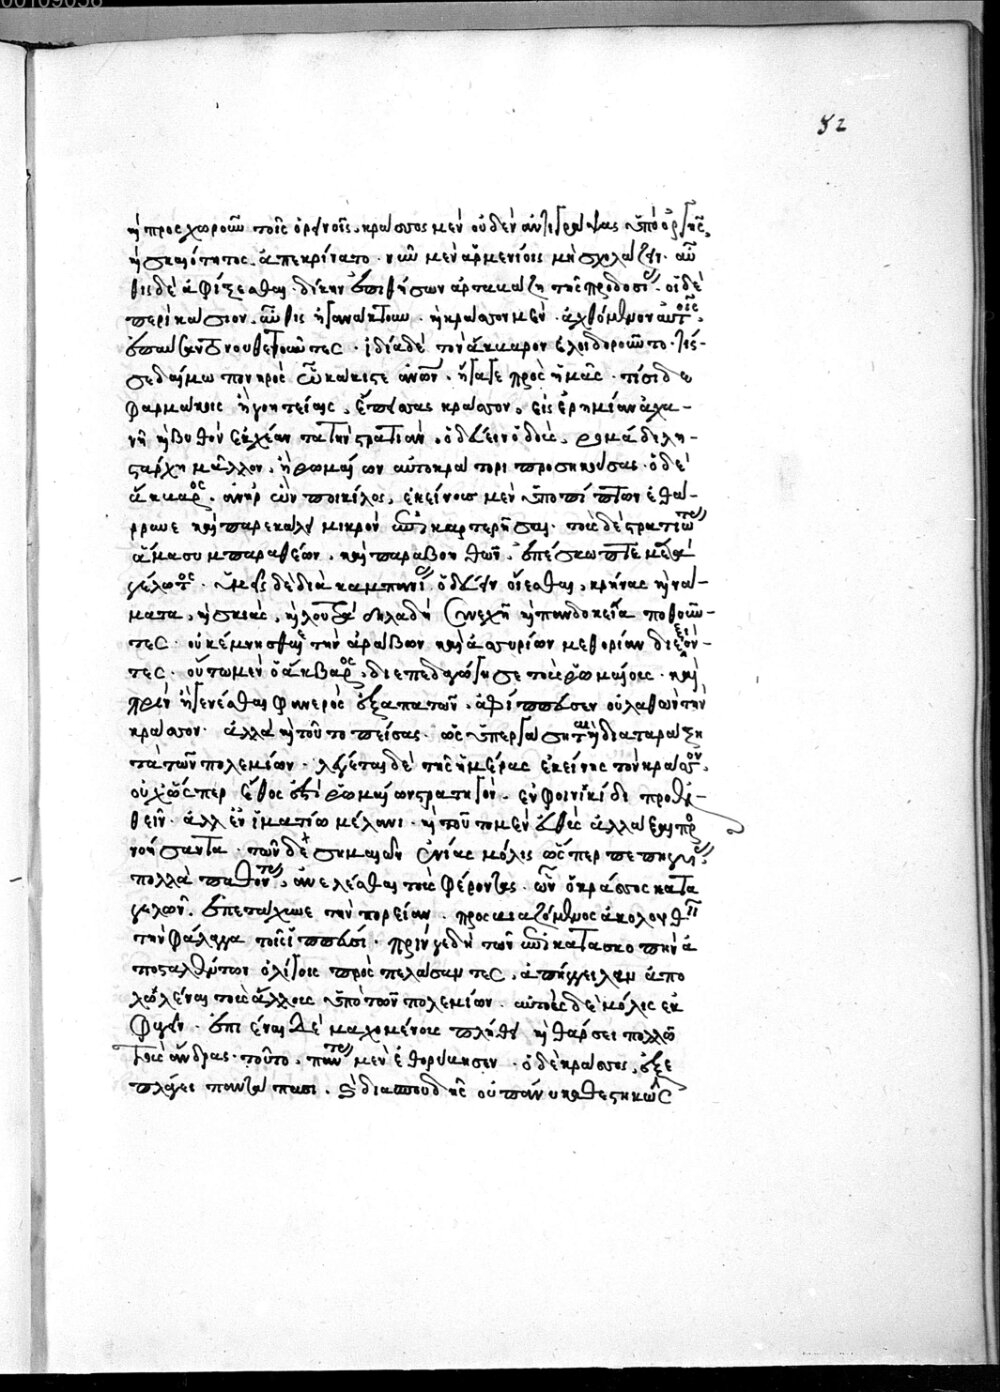 ἢ προσχωροῦν τοῖς ὀρεινοῖς. κράσσος μὲν οὐδὲν ἀντιγράψας ὑπὸ ὀργῆς,
ἢ σκαιότητος. ἀπεκρίνατο. νῦν μὲν ἀρμενίοις μὴ σχολάζειν. αὖ
θις δὲ ἀφίξεσθαι. δίκην ἐπιθήσων ἀρταβάζῃ τῆς προδοσίας. οἱ δὲ
περὶ κάσσιον. αὖθις ἠγανάκτουν. ἢ κράσσον μὲν. ἀχθόμενον αὐτοῖς,
ἐπαύσαντο νουθετοῦντες. ἰδίᾳ δὲ τὸν ἄκμαρον ἐλοιδοροῦντο. τίς
σε δαίμων πονηρὸς ὦ κάκιστε ἀνδρῶν. ἤγαγε πρὸς ἡμᾶς. τίσι δὲ
φαρμάκοις ἢ γοητείαις. ἔπεισας κράσσον, εἰς ἐρημίαν ἀχα-
νῆ ἢ βυθὸν ἐκχέαντα τὴν στρατιὰν. ὁδεύειν ὁδοὺς. νομάδι λῃ-
στάρχῃ μᾶλλον. ἢ ῥωμαίων αὐτοκράτορι προσηκούσας. ὁ δὲ
ἄκμαρος. ἀνὴρ ὢν ποικίλος, ἐκείνους μὲν ὑποπίπτων ἐθα-
ρρυνε καὶ παρεκάλει μικρὸν ἔτι καρτερῆσαι. τοὺς δὲ στρατιώτας
ἅμα συμπαραθέων. καὶ παραβοηθῶν. ἐπέσκωπτε μετὰ
γέλωτος. ὑμεῖς δὲ διὰ καμπανίας ὁδεύειν οἴεσθαι. κρήνας ἢ νά-
ματα, ἢ σκιὰς, ἢ λουτρὰ δηλαδὴ συνεχῆ ἢ πανδοκεῖα ποθοῦν-
τες. οὐ μέμνησθαι τὴν ἀράβων καὶ ἀσυρίων μεθορίαν διεξιόν-
τες. οὕτω μὲν ὁ ἄκβαρος, διεπεδαγώγησε τοὺς ῥωμαίους. καὶ
πρὶν ἢ γενέσθαι φανερὸς ἐξαπατῶν. ἀφίππευσεν οὐ λαθὼν τὸν
κράσσον. ἀλλὰ ἢ τοῦτο πείσας. ὡς ὑπεργάσηται ἢ διαταράξῃ
τὰ τῶν πολεμίων. λέγεται δὲ τῆς ἡμέρας ἐκείνης τὸν κράσσον,
οὐχ ὥσπερ ἔθος ἐστὶ ῥωμαίων στρατηγὸν. ἐν φοινικίδι προελ-
θεῖν. ἀλλ' ἐν ἱματίῳ μέλανι. ἢ τοῦτο μὲν εὐθὺς ἀλλάξαι προ
νοήσαντα. τῶν δὲ σημαιῶν ἐνίας μόλις ὥσπερ πεπηγυίας
πολλὰ παθόντες, ἀνελέσθαι τοὺς φέροντας. ὧν ὁ κράσσος κατα
γελῶν. ἐπετάχυνε τὴν πορείαν. προσβιαζόμενος ἀκολουθεῖν
τὴν φάλαγγα τοῖς ἱππεῦσι. πρίν γε δὴ τῶν ἐπὶ κατασκοπὴν ἀ
ποσταλέντων ὀλίγοις προσπελάσαντες, ἀπήγγειλαν ἀπο
λωλέναι τοὺς ἄλλους ὑπὸ τῶν πολεμίων. αὐτοὺς δὲ μόλις ἐκ
φυγεῖν. ἐπιέναι δὲ μαχομένους πλήθει ἢ θάρσει πολλῷ
τοὺς ἄνδρας. τοῦτο. πάντας μὲν ἐθορύβησεν. ὁ δὲ κράσσος. ἐξε
πλάγει παντάπασι. διὰ σπουδῆς οὐ πάνυ καθεστηκὼς